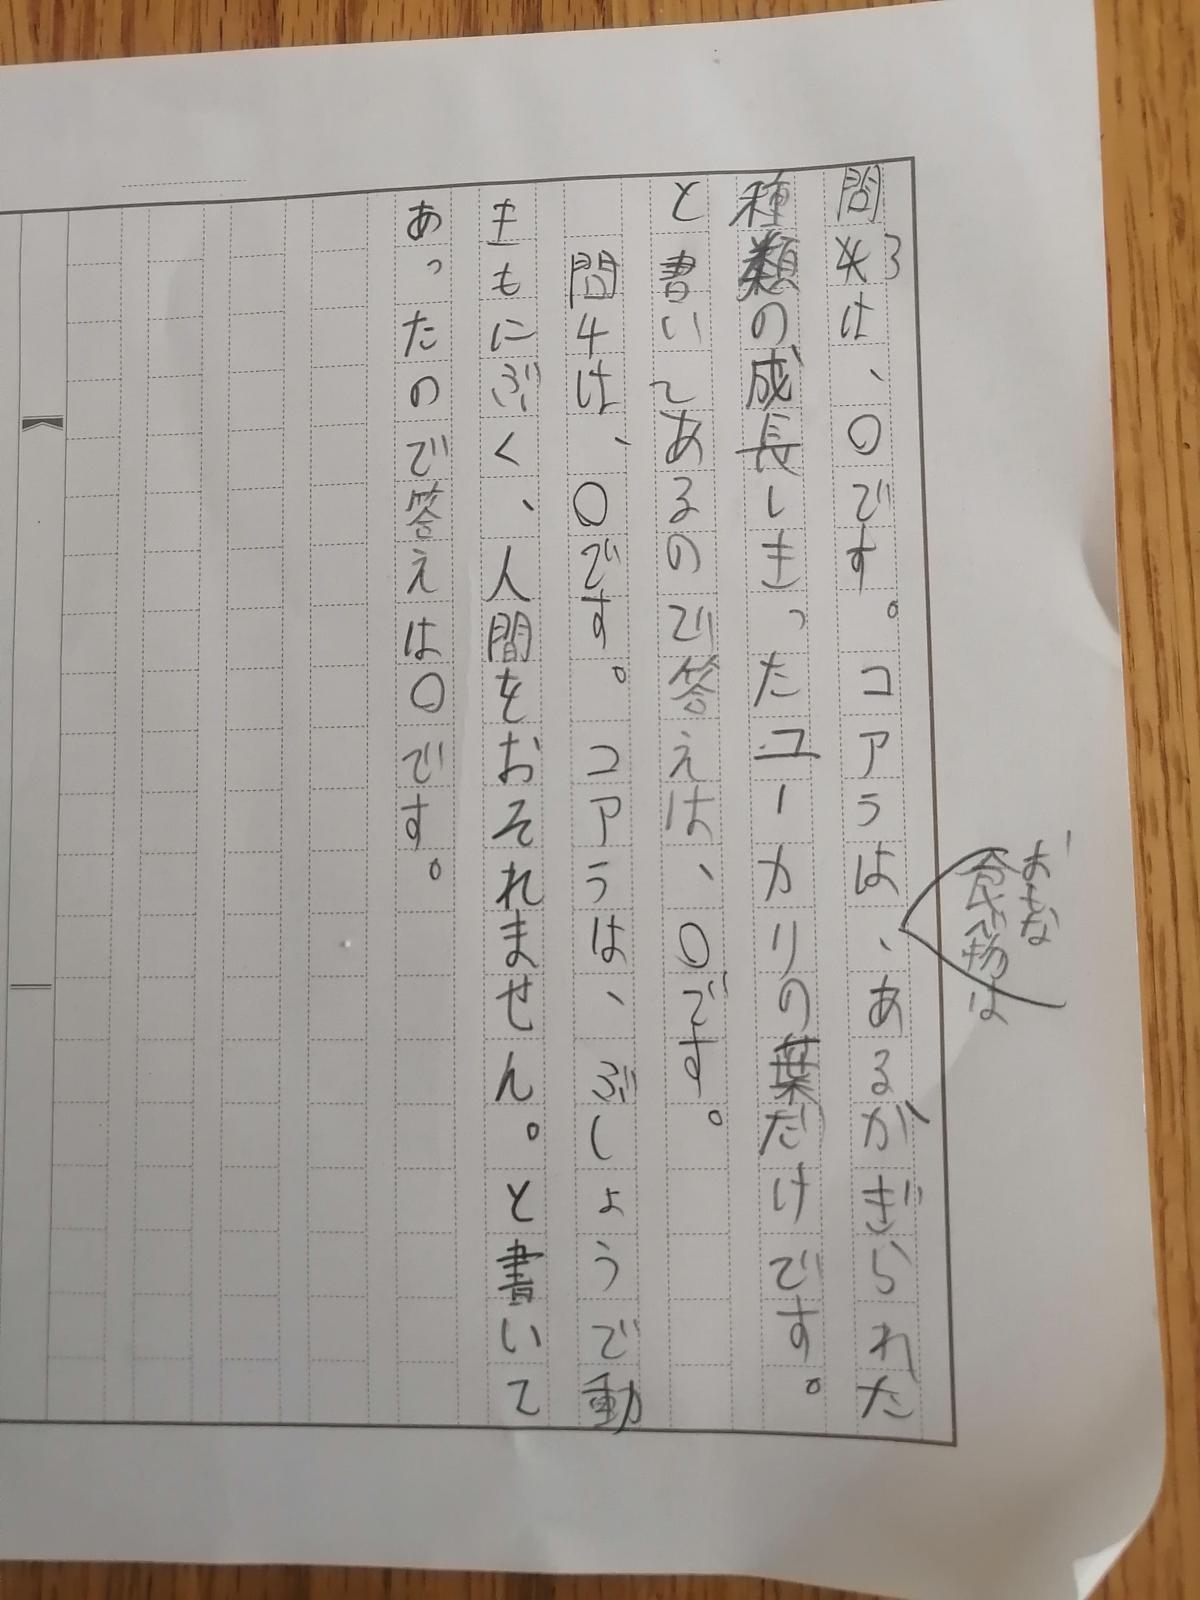 問3は、〇です。コアラは、あるがぎられた
おもな
食物は
種類の成長しきったユーカリの葉だけです。
と書いてあるので答えは、〇です。
問4は、〇です。コアラは、ぶしょうで動
きもにぶく、人間をおそれません。と書いて
あったので答えは〇です。